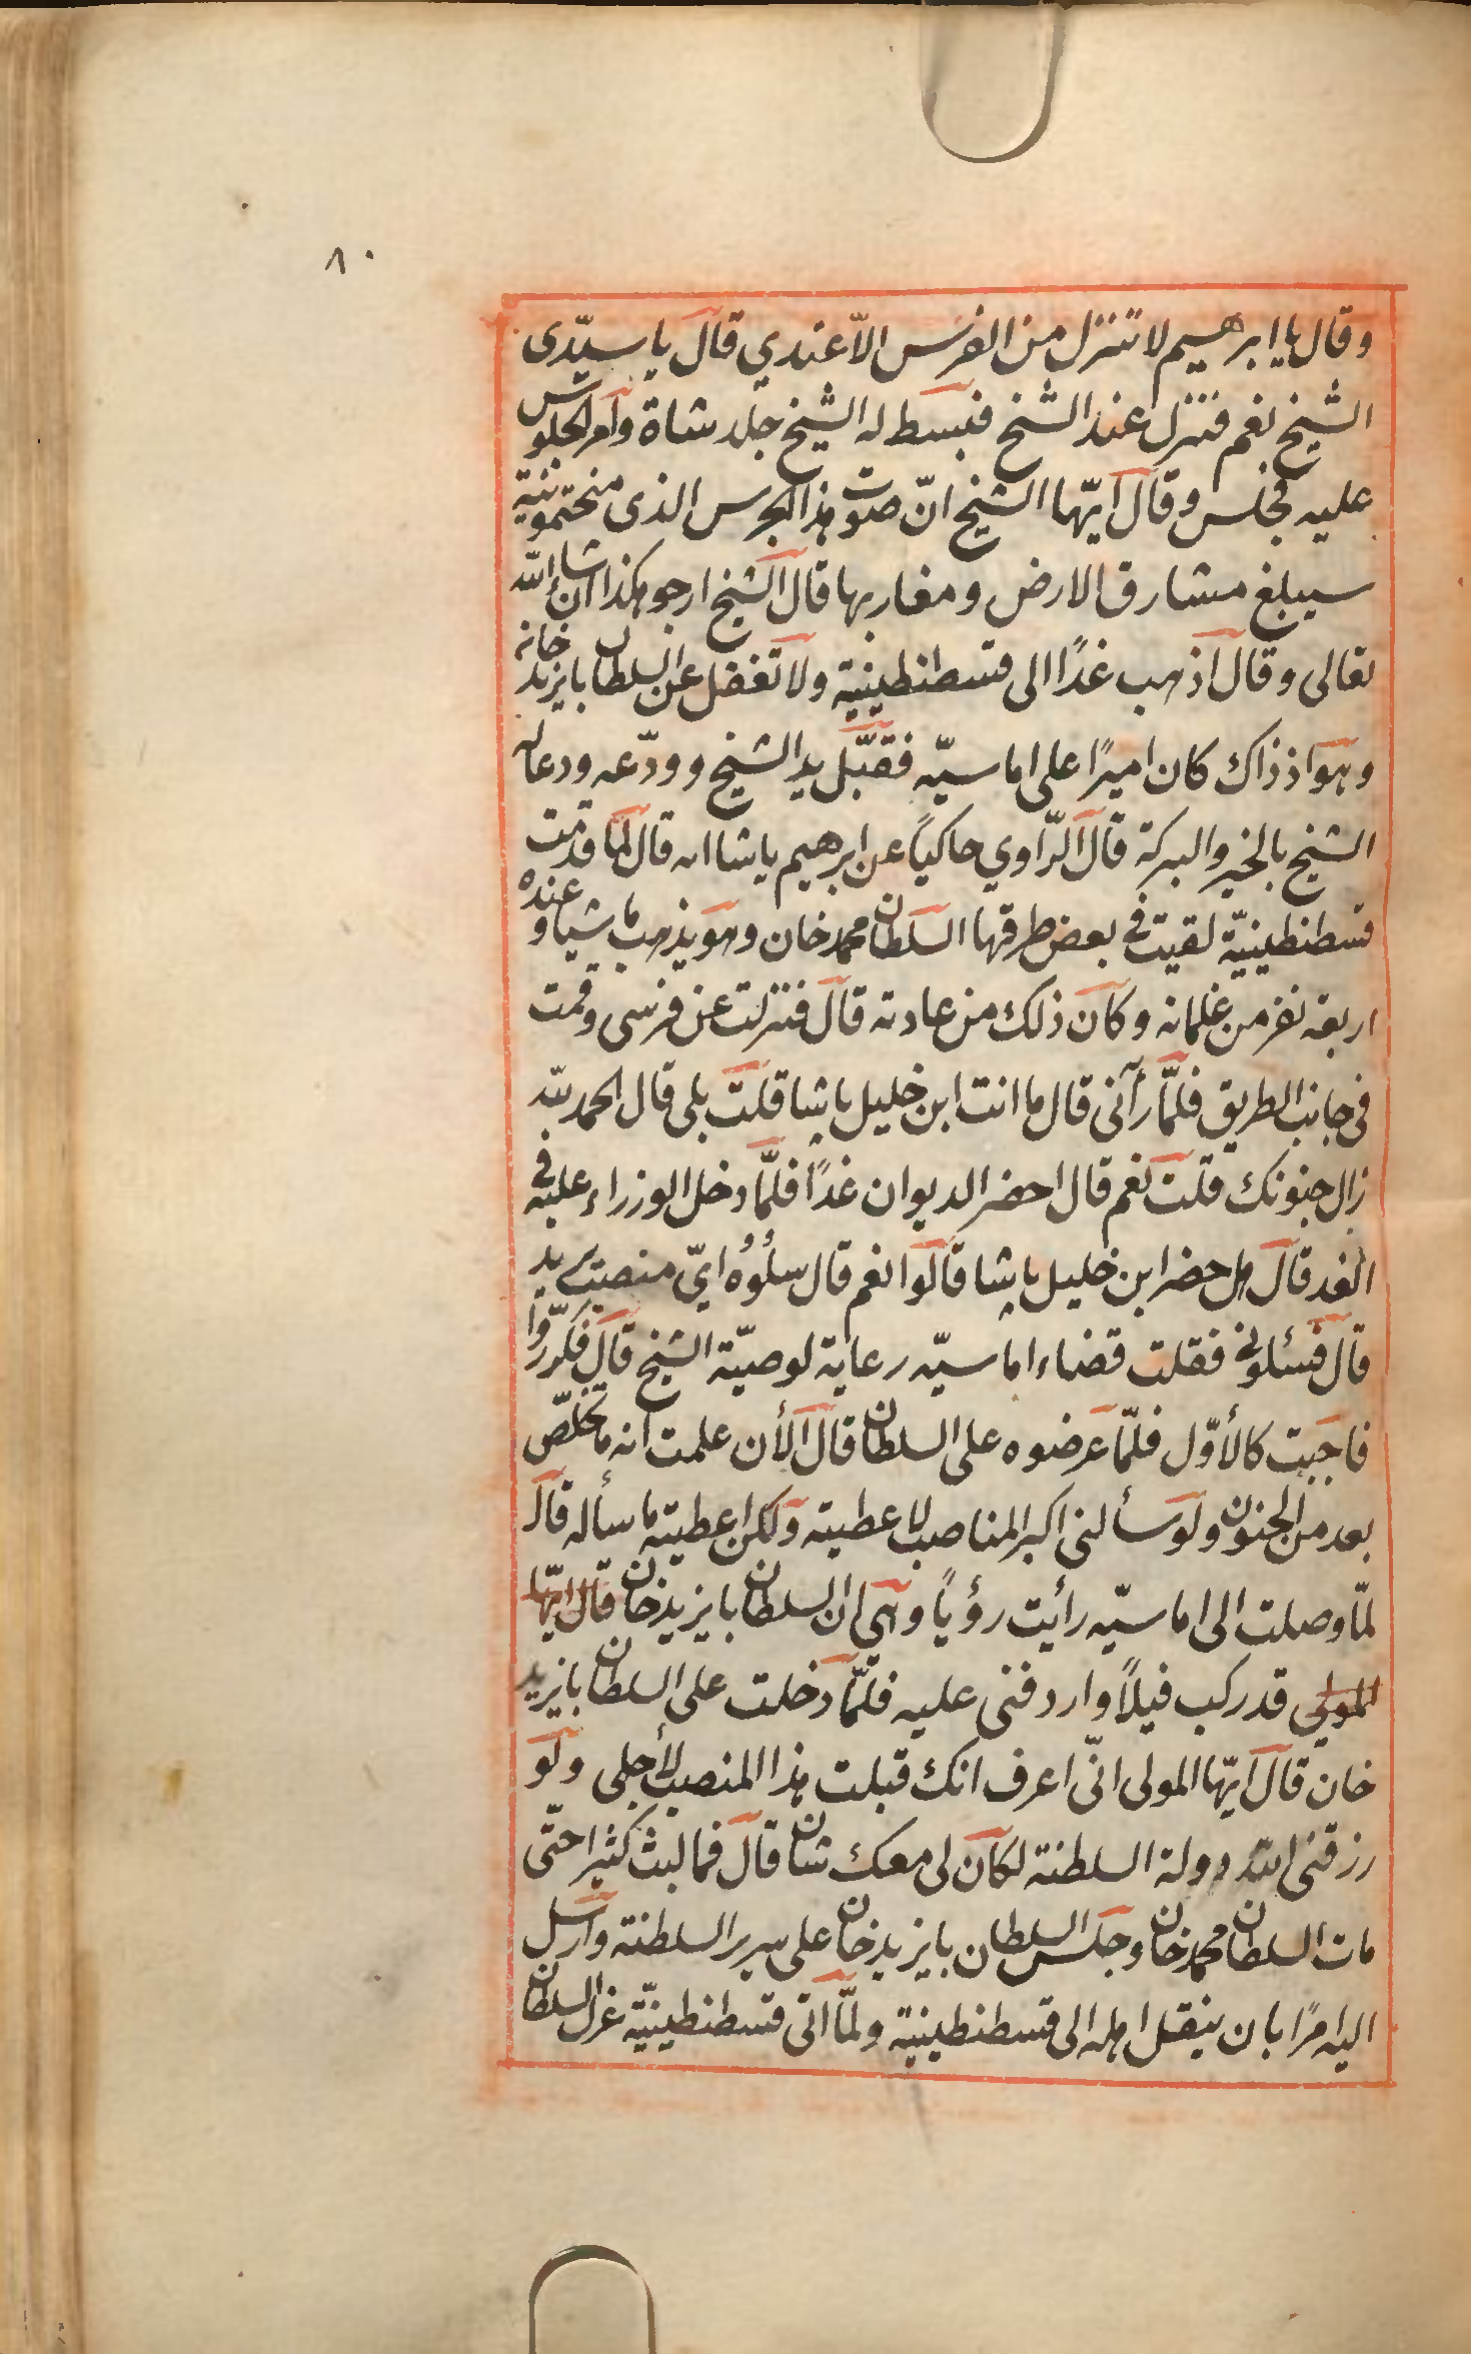 ٨٠
وقال يا ابرهيم لا تنزل من الفرس الاّ عندي قال يا سيّدى
الشيخ نعم فنزل عند الشيخ فبسط له الشيخ جلد شاة وامر الجلوس
عليه فجلس وقال ايّها الشيخ انّ صوت هذا الجرس الذى منحتمونيه
سيبلغ مشارق الارض ومغاربها قال الشيخ ارجو هكذا ان شاء الله
تعالى وقال اذهب غدًا الى قسطنطينية ولا تغفل عن السلطان بايزيد خانه
وهو اذ ذاك كان اميرًا على اماسيّه فقبّل يد الشيخ وودّعه ودعا له
الشيخ بالخير والبركة قال الرّاوي حاكياً عن ابرهيم پاشا انه قال لما قدمت
قسطنطينيّة لقيت في بعض طرقها السلطان محمد خان وهو يذهب ماشيا وعنده
اربعة نفر من غلمانه وكان ذلك من عادته قال فنزلت عن فرسى وقمت
فى جانب الطريق فلمّا رآنى قال ما انت ابن خليل پاشا قلت بلى قال الحمد لله
زال جنونك قلت نعم قال احضر الديوان غدًا فلمّا دخل الوزراء عليه في
الغد قال هل حضر ابن خليل پاشا قالوا نعم قال سلُوُه ايّ منصب يريد
قال فسئلونى فقلت قضاء اماسيّه رعاية لوصيّة الشيخ قال فكرّروا
فاجبت كالأوّل فلمّا عرضوه على السلطان قال الأن علمت انه ما تخلّص
بعد من الجنون ولو سألنى اكبر المناصب لاعطيته ولكن اعطيته ما سأله قال
لمّا وصلت الى اماسيّه رأيت رؤياً وهي ان السلطان بايزيد خان قال ايّها
المولى قد ركب فيلاً واردفنى عليه فلمّا دخلت على السلطان بايزيد
خان قال ايّها المولى انّى اعرف انك قبلت هذا المنصب لأجلى ولو
رزقنى الله دولة السلطنة لكان لى معك شان قال فما لبث كثيرا حتّى
مات السلطان محمد خان وجلس السلطان بايزيد خان على سرير السلطنة وارسل
اليه امرًا بان ينقل اهله الى قسطنطينية ولمّا اتى قسطنطينيّة عزل السلطان